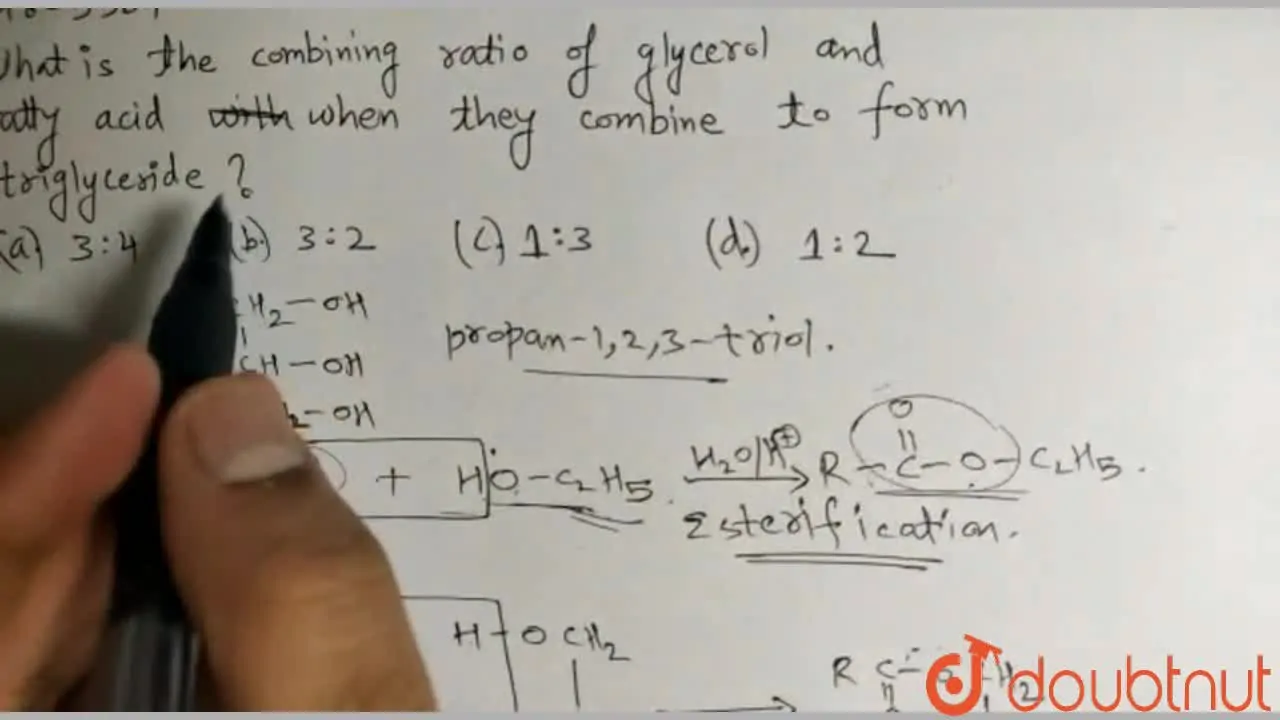 What is the combining ratio of glycerol and
atty acid with when they combine to form
triglyceride ?
(a) 3:4 (b) 3:2 (c) 1:3 (d) 1:2
H2-OH
CH-OH
propan-1,2,3-triol.
2-OH
+ HO-C2H5 H2O/H+ R-C-O-C2H5.
O
Esterification.
H-OCH2
R C
doubtnut